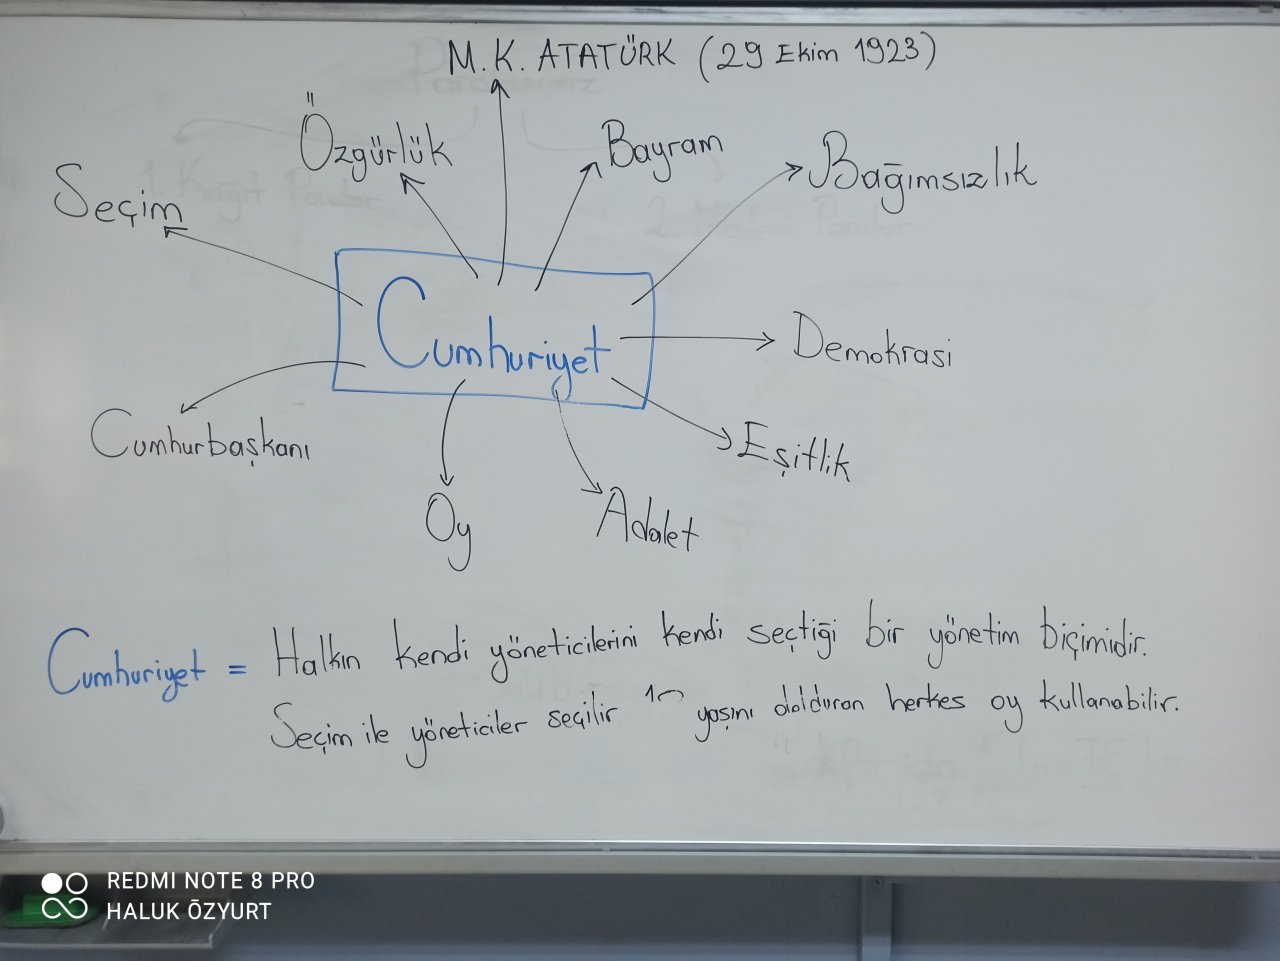 M.K. ATATÜRK (29 Ekim 1923)
Özgürlük
Bayram
Bağımsızlık
Seçim
Cumhuriyet
Demokrasi
Cumhurbaşkanı
Eşitlik
Oy
Adalet
Cumhuriyet = Halkın kendi yöneticilerini kendi seçtiği bir yönetim biçimidir.
Seçim ile yöneticiler seçilir yaşını dolduran herkes oy kullanabilir.
REDMI NOTE 8 PRO
HALUK ÖZYURT